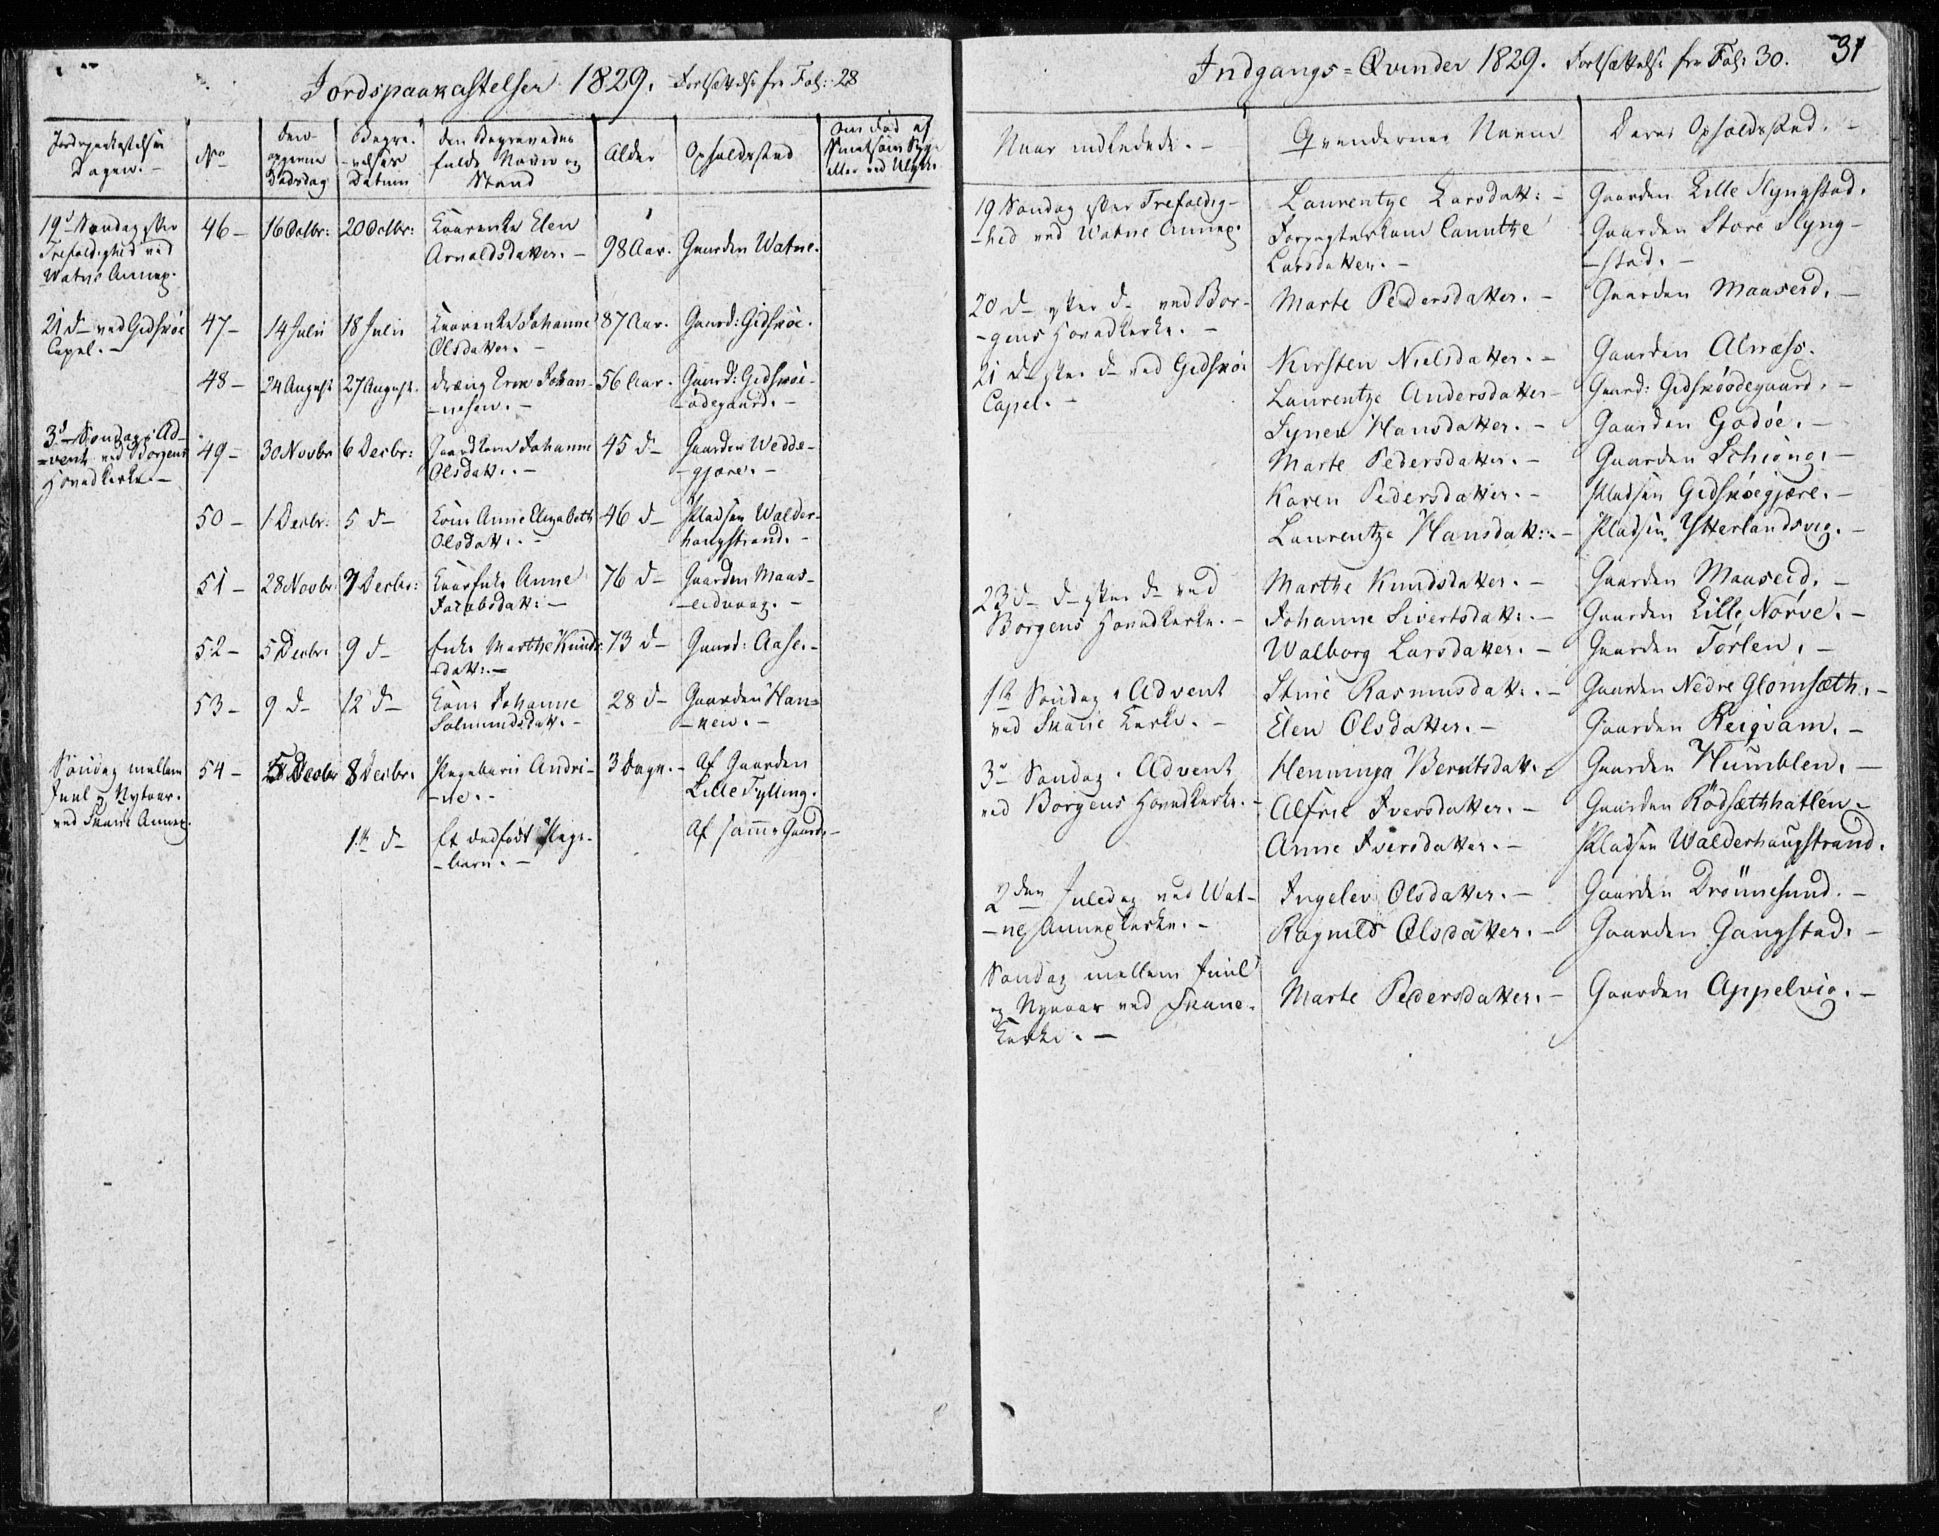 Jordspaakastelser 1829. Fortsættelse fra Fol: 28
Jordspaakastelses
Dagen. -
No
Den
opgivne
Dødsdag
Begra-
-velses
Datum
Den Begravedes
fulde Navn og
Stand
Alder
Opholdssted
Om død af
Smitsom Syge
eller ved Ulykke
19d Søndag efter
Trefoldighed ved
Watne Annex.
46 -
16 Octbr:
20 Octbr:
Elen
Arnoldsdatter. -
98 Aar.
Gaarden Watne.
21 d- ved Gidskøe
Capel. -
47 -
14 Julii
18 Julii
Johanne
Olsdatter. -
87 Aar.
Gaard: Gidskøe.
48 -
24 August
27 August.
Dreng Johan-
-nesen. -
56 Aar.
Gaard: Gidskøe-
-ødegaard. -
3d Søndag i Ad-
-vent ved Borgens
Hovedkirke. -
49 -
30 Novbr
6 Decbr:
Johanne
Olsdatt: -
45 d-
Gaarden Wedde-
-gjære. -
50 -
1 Decbr:
5 d-
Kone Anne Elisabeth
Olsdatt: -
46 d-
Pladsen Walder-
haugstrand. -
51 -
28 Novbr
7 Decbr:
Anne
Jacobsdatt: -
76 d-
Gaarden Maas-
-eidvaag. -
52 -
5 Decbr:
9 d-
Enke Marthe Knuds-
-datt: -
73 d-
Gaard: Aase. -
53 -
9 d-
12 d-
Kone Johanne
Salmundsdatt. -
28 d-
Gaarden Han-
-ken. -
Søndag mellem
Juul og Nytaar
ved Skaue Annex.
54 -
5 Decbr
8 Decbr.
Pigebarn Andri-
-ne. -
3 Dage. -
Af Gaarden
Lille Tylling.
1te d-
Et dødfødt Pige-
-barn. -
Af samme Gaard. -
31
Indgangs-Qvinder 1829. Fortsættelse fra Fol: 30.
Naar indledede. -
Qvindernes Navne
Deres Opholdssted. -
19 Søndag efter Trefoldig-
-hed ved Watne Annex.
Laurentze Larsdatt: -
Gaarden Lille Slyngstad.
Larsdatter. -
Gaarden Store Slyng-
-stad. -
20 d- efter d- ved Bor-
-gens Hovedkirke. -
Marte Pedersdatter. -
Gaarden Maaseid. -
21 d- efter d- ved Gidskøe
Capel. -
Kirsten Nielsdatter. -
Gaarden Alnæss.
Laurentze Andersdatter -
Gaard: Gidskøødegaard. -
Synev Hansdatter. -
Gaarden Godøe. -
Marte Pedersdatter. -
Gaarden Schiong. -
Karen Pedersdatter. -
Pladsen Gidskøegjære. -
Laurentze Hansdatt: -
Pladsen Ytterlandsvig. -
23 d- d- efter d- ved
Borgens Hovedkirke. -
Marthe Knudsdatter. -
Gaarden Maaseid. -
Johanne Sivertsdatt: -
Gaarden Lille Nørve. -
Walborg Larsdatter. -
Gaarden Torlen. -
1te Søndag i Advent
ved Skaue Kirke. -
Stine Rasmusdatt: -
Gaarden Nedre Glomsæth. -
Elen Olsdatter. -
Gaarden Reiqvam. -
3d Søndag i Advent
ved Borgens Hovedkirke. -
Henninga Berntsdatt. -
Gaarden Humblen. -
Iversdatter. -
Gaarden Rødsæthhatlen -
Anne Iversdatter. -
Pladsen Walderhaugstrand.
2den Juledag ved Wat-
-ne Annexkirke. -
Ingelev Olsdatter. -
Gaarden Drønnesund. -
Ragnild Olsdatter. -
Gaarden Gangstad. -
Søndag mellem Juul
og Nyaar ved Skaue
Kirke. -
Marte Pedersdatter. -
Gaarden Appelvig. -